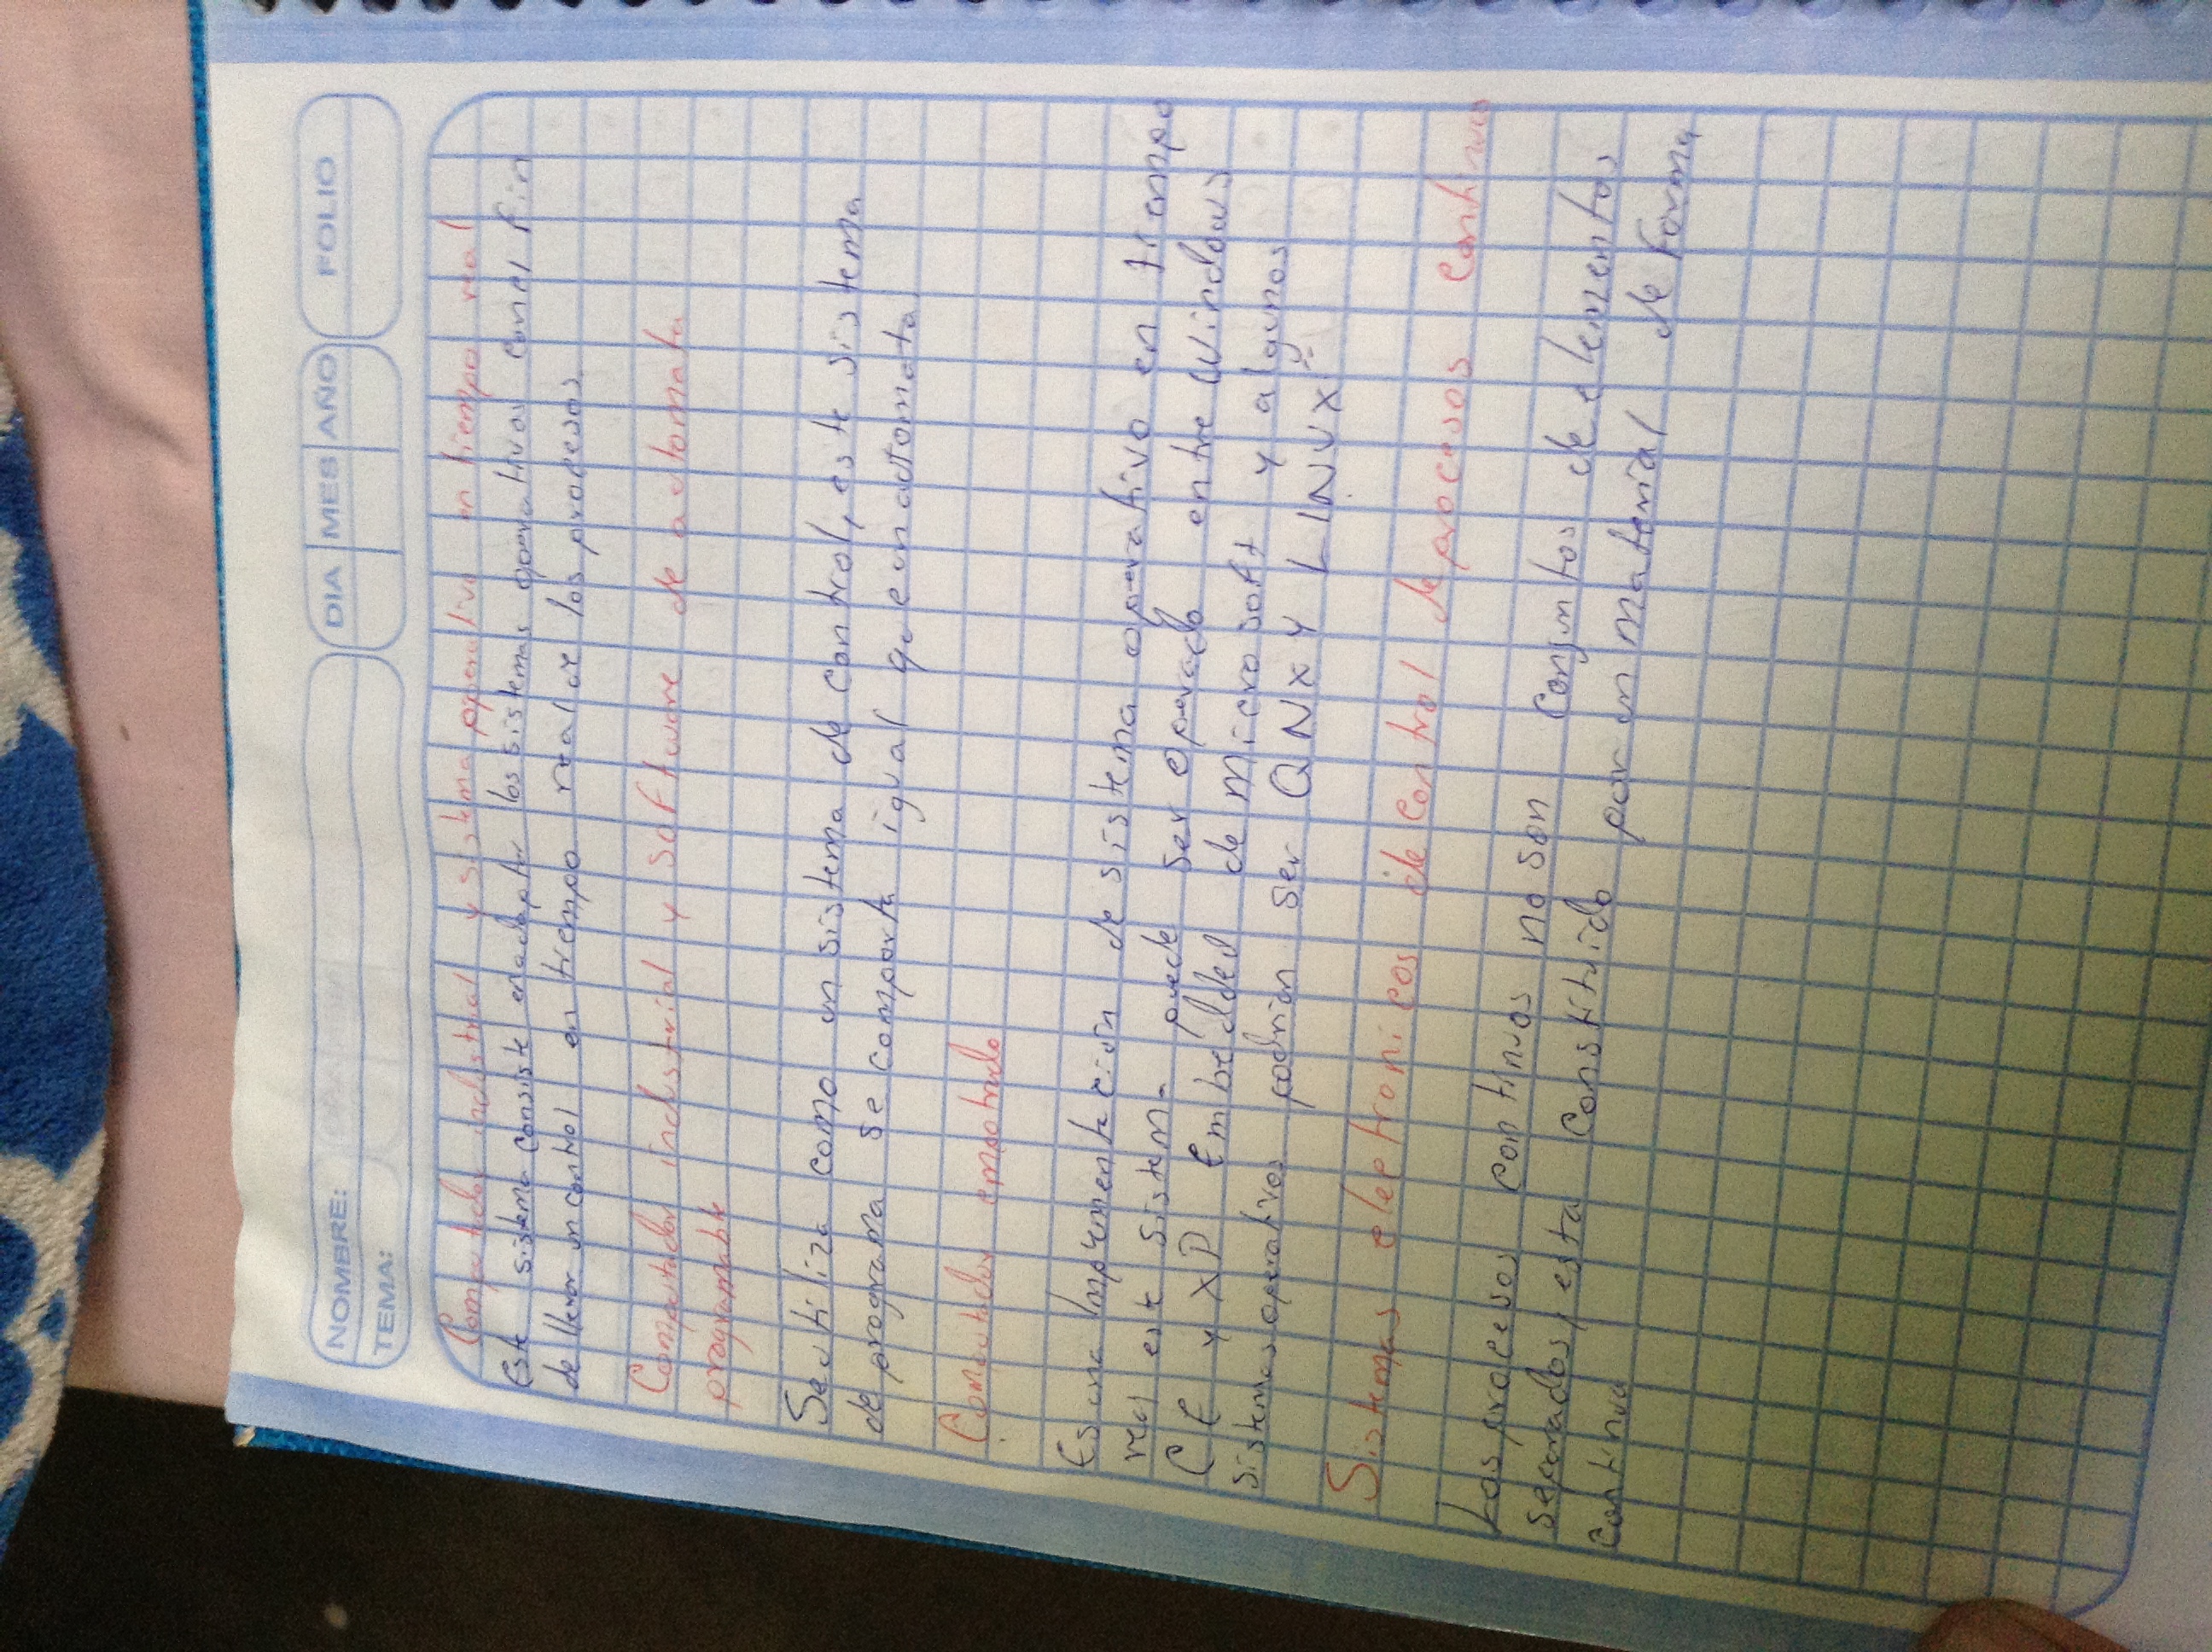 NOMBRE:
TEMA:
DIA MES AÑO
FOLIO
Computador industrial y sistema operativo en tiempo real
Este sistema consiste en adaptar los sistemas operativos con el fin
de llevar un control en tiempo real de los procesos.
Computador industrial y software de automata
programable
Se utiliza como un sistema de control, este sistema
de programa se comporta igual que un automata.
Computador empotrado
Es una Implementación de sistema operativo en tiempo
real este sistema puede ser operado entre Windows
CE y XP Embedded de microsoft y algunos
sistemas operativos podrian ser QNX Y LINUX
Sistemas electronicos de control de procesos continuos
Los procesos continuos no son conjuntos de elementos
separados, esta constituido por un material de forma
continua